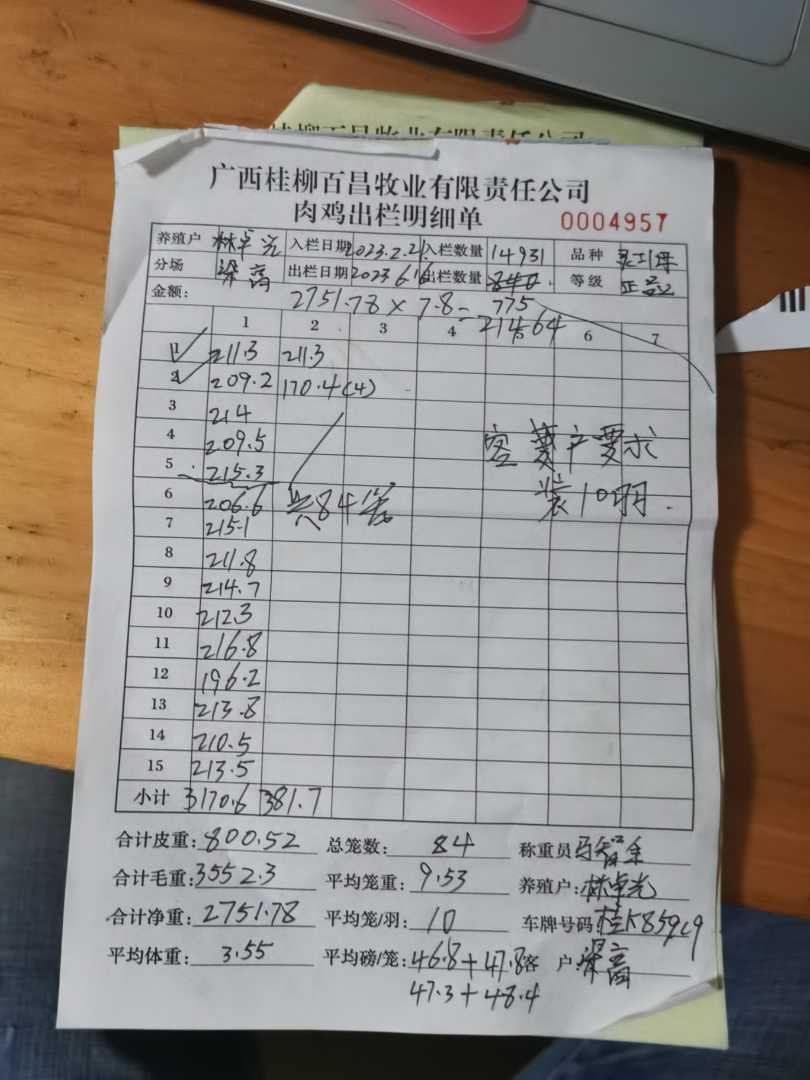 桂柳百昌牧业有限责任公司
广西桂柳百昌牧业有限责任公司
肉鸡出栏明细单 0004957
养殖户 林卓光 入栏日期 2023.2.21 入栏数量 14931 品种
分场 梁高 出栏日期 2023.6.16 出栏数量 等级 正品
金额: 2751.78 × 7.8 = 21464
775
1 2 3 4 6 7
1 211.3 211.3
2 209.2 170.4(4)
3 214
4 209.5 客 户要求
5 215.3 装10羽.
6 206.6 共84笼
7 215.1
8 211.8
9 214.7
10 212.3
11 216.8
12 196.2
13 213.8
14 210.5
15 213.5
小计 3170.6 381.7
合计皮重: 800.52 总笼数: 84 称重员
合计毛重: 3552.3 平均笼重: 9.53 养殖户: 林卓光
合计净重: 2751.78 平均笼/羽: 10 车牌号码 桂K859c9
平均体重: 3.55 平均磅/笼: 46.8+47.8 客 户: 梁高
47.3+48.4